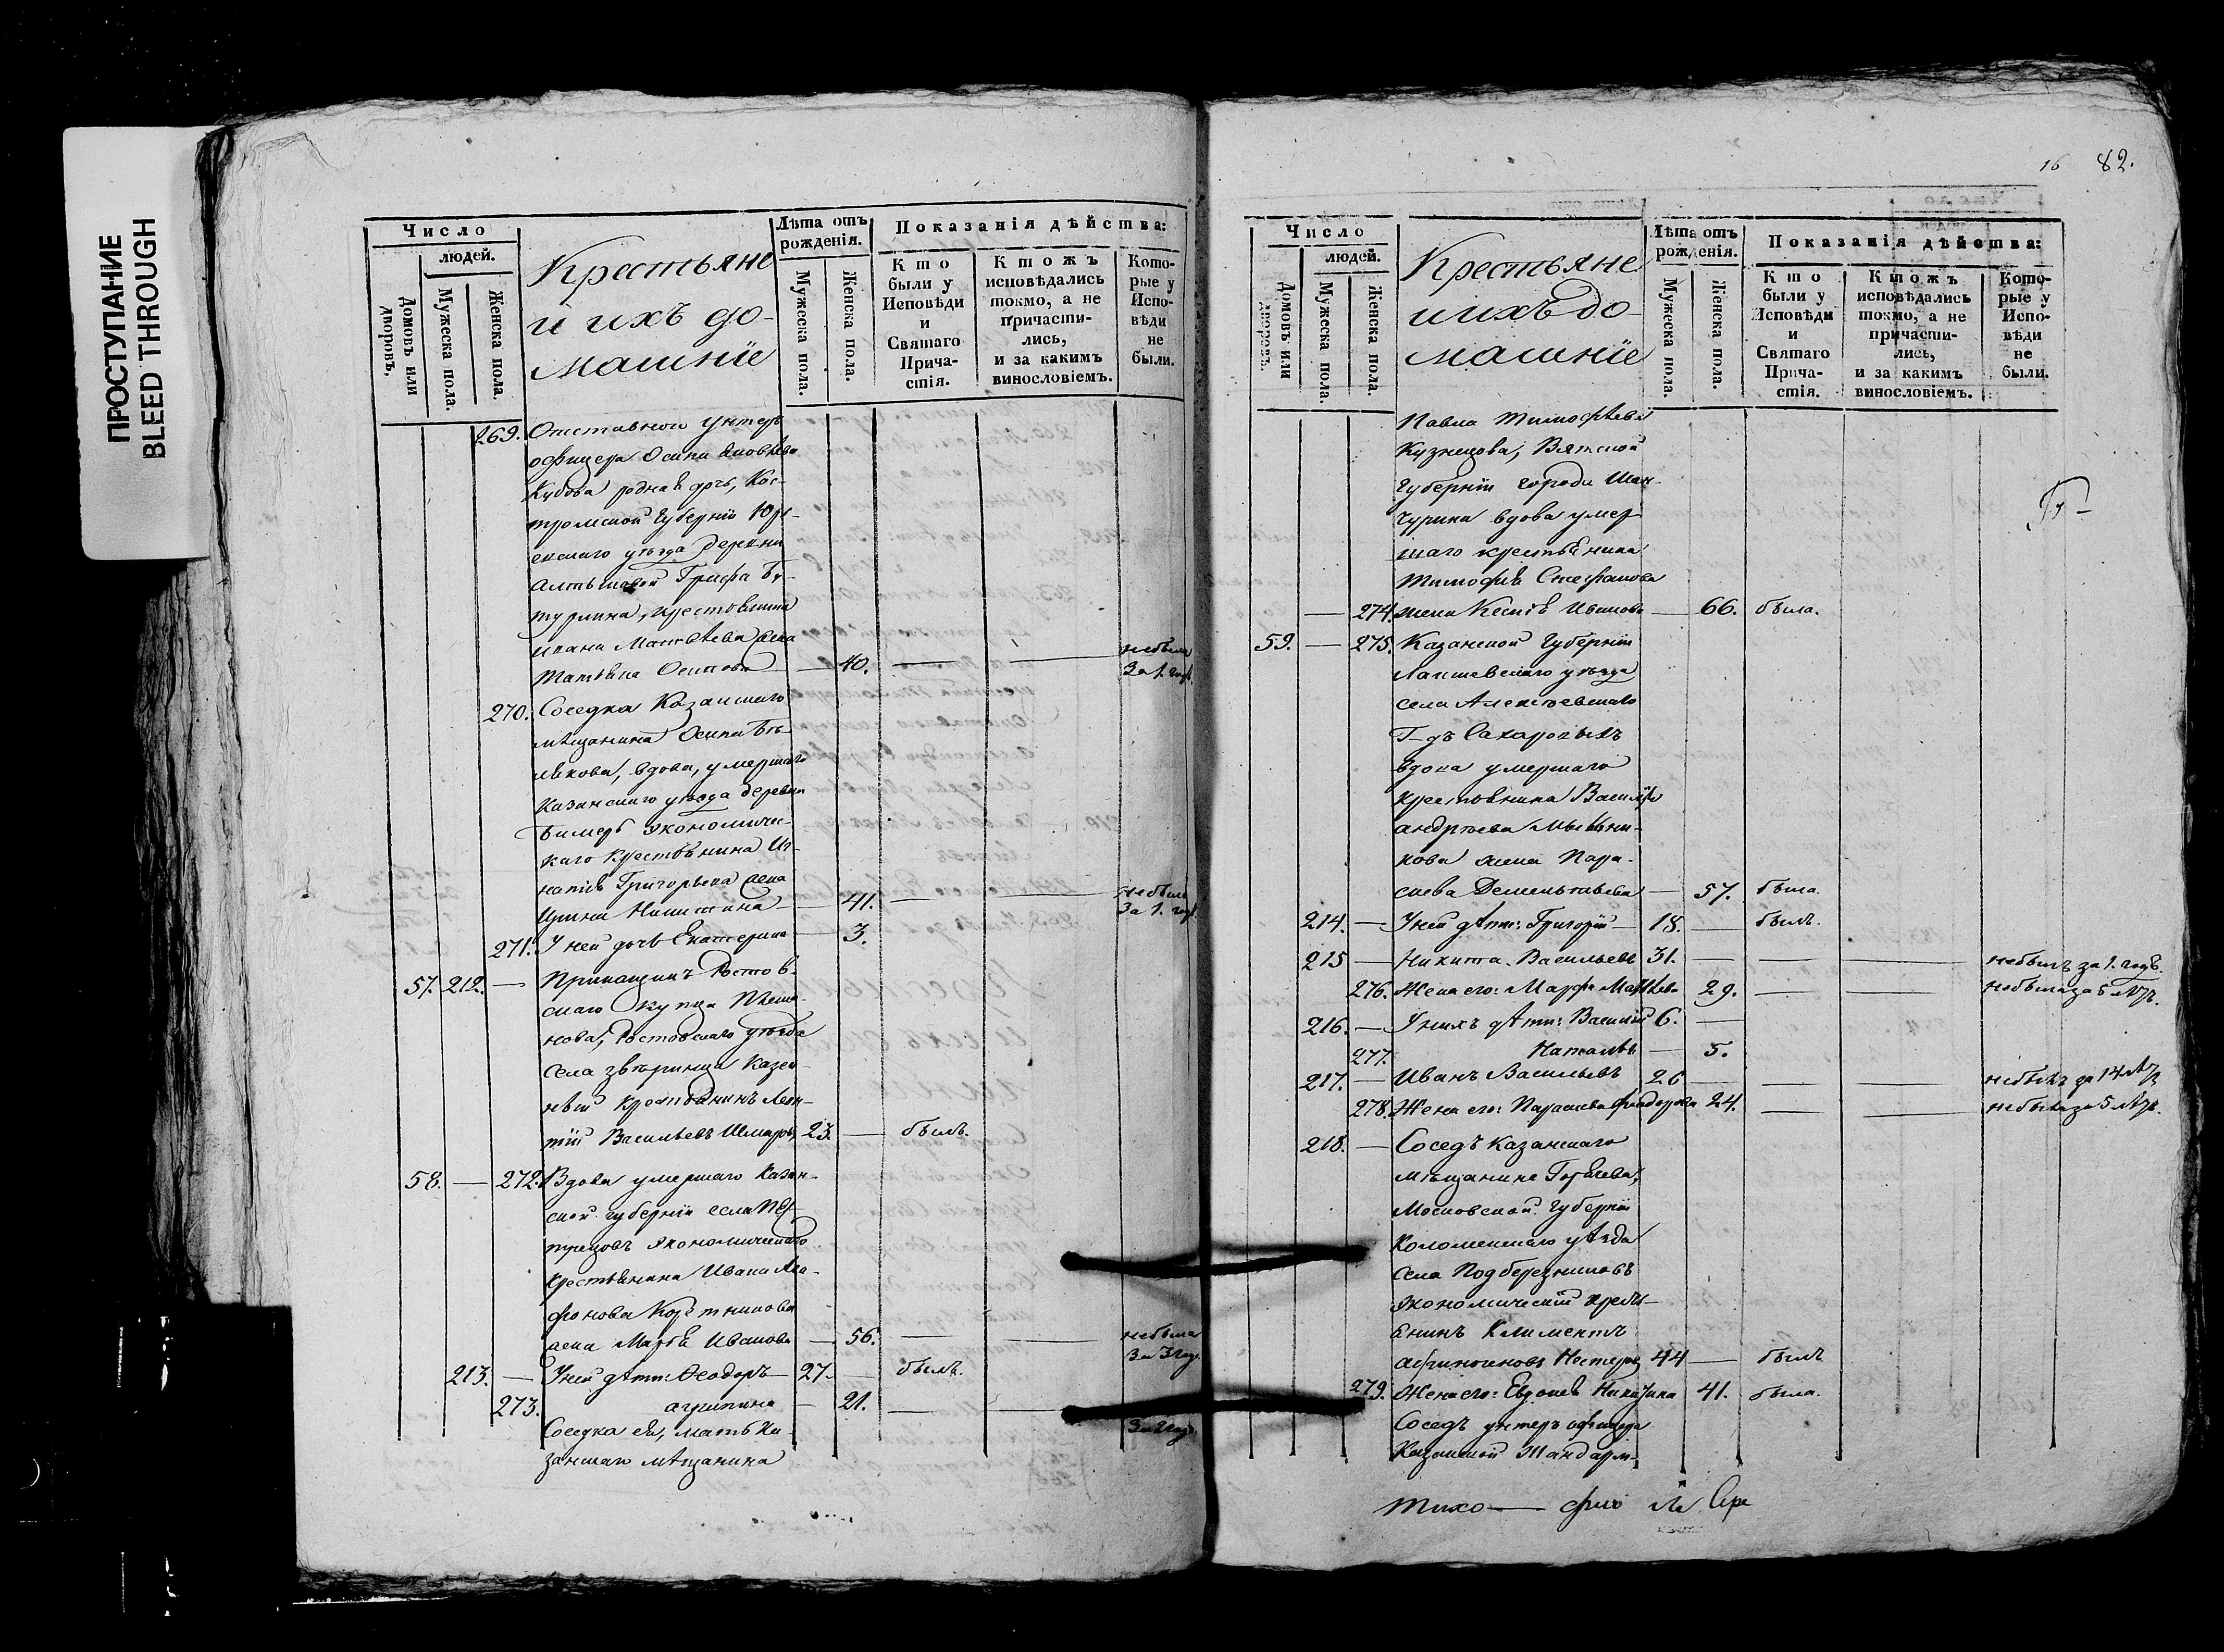 ПРОСТУПАНИЕ
BLEED THROUGH
Число
людей.
Домовъ или дворовъ.
Мужеска пола.
Женска пола.
Крестьяне
и ихъ до-
машніе
Лѣта отъ рожденія.
Мужеска пола.
Женска пола.
Показанія дѣйства:
Кто были у Исповѣди и Святаго Причастія.
Ктожъ исповѣдались токмо, а не причастились, и за какимъ винословіемъ.
Которые у Исповѣди не были.
269. Отставнаго Унтеръ
офицера Осипа Яковлева
Кубова родная дочь, Кос-
тромской Губерніи Юрь-
евскаго уѣзда деревни
Графа Бу-
турлина, крестьянина
Ивана Матвѣева жена
Татьяна Осипова — 40. — — небыла
За 1. годъ.
270. Соседка Казанскаго
мѣщанина Осипа Бѣ-
лякова, вдова, умершаго
Казанскаго уѣзда деревни
Бимерь Экономичес-
каго крестьянина Иг-
натія Григорьева жена
Ирина Никитина — 41. — — небыла
За 1. годъ.
271. У ней дочь Екатерина — 3.
57. 212. — Прикащикъ Ростов-
скаго купца Плеша-
нова, Ростовскаго уѣзда
Села Звѣринца Казен-
ный крестьянинъ Леон-
тій Васильевъ 23. — былъ.
58. — 272. Вдова умершаго Казан-
ской губерніи села Пест-
рецовъ Экономическаго
Крестьянина Ивана Ага-
фонова
жена Марѳа Иванова — 56. — — небыла
За 3 года.
213. — У ней дѣти: Ѳеодоръ — 27. — былъ.
273. агрипина — 21. —
За 2 года.
Соседка ея, мать Ка-
занскаго мѣщанина
16 82.
Число
людей.
Домовъ или дворовъ.
Мужеска пола.
Женска пола.
Крестьяне
и ихъ до-
машніе
Лѣта отъ рожденія.
Мужеска пола.
Женска пола.
Показанія дѣйства:
Кто были у Исповѣди и Святаго Причастія.
Ктожъ исповѣдались токмо, а не причастились, и за какимъ винословіемъ.
Которые у Исповѣди не были.
Павла Тимофѣева
Кузнецова, Вятской
Губерніи города Шан-
чурина вдова умер-
шаго крестьянина
Тимофея Стефанова
— 274. жена Ксенія Иванова — 66. была.
59. — 275. Казанской Губерніи
Лаишевскаго уѣзда
села Алексѣевскаго
Г-дъ Сахаровыхъ
вдова умершаго
крестьянина Василья
андрѣева Мыльни-
кова жена Пара-
скева Дементьева — 57. была.
214. — У ней дѣти: Григорій — 18. — былъ.
215 — Никита Васильевъ 31. — — — небылъ за 1. годъ.
276. Жена его: Марфа Матвѣева 29. — — небыла за 5 лѣтъ.
216. — У нихъ дѣти: Василій 6. —
277. Наталья — 5.
217. — Иванъ Васильевъ 26 — — — небылъ за 14 лѣтъ
278. Жена его: Параскева Ѳиодорова 24. — — небыла за 5 лѣтъ.
218. — Соседъ Казанскаго
мѣщанина
Московской Губерніи
Коломенскаго уѣзда
Села Подберезниковъ
Экономическій кресть-
янинъ Климентъ
Нестеровъ 44 — былъ
279. Жена его: Евдокія Никитина 41. была.
Соседъ унтеръ офицера
Казанской Жандарм-
Тихо — фин